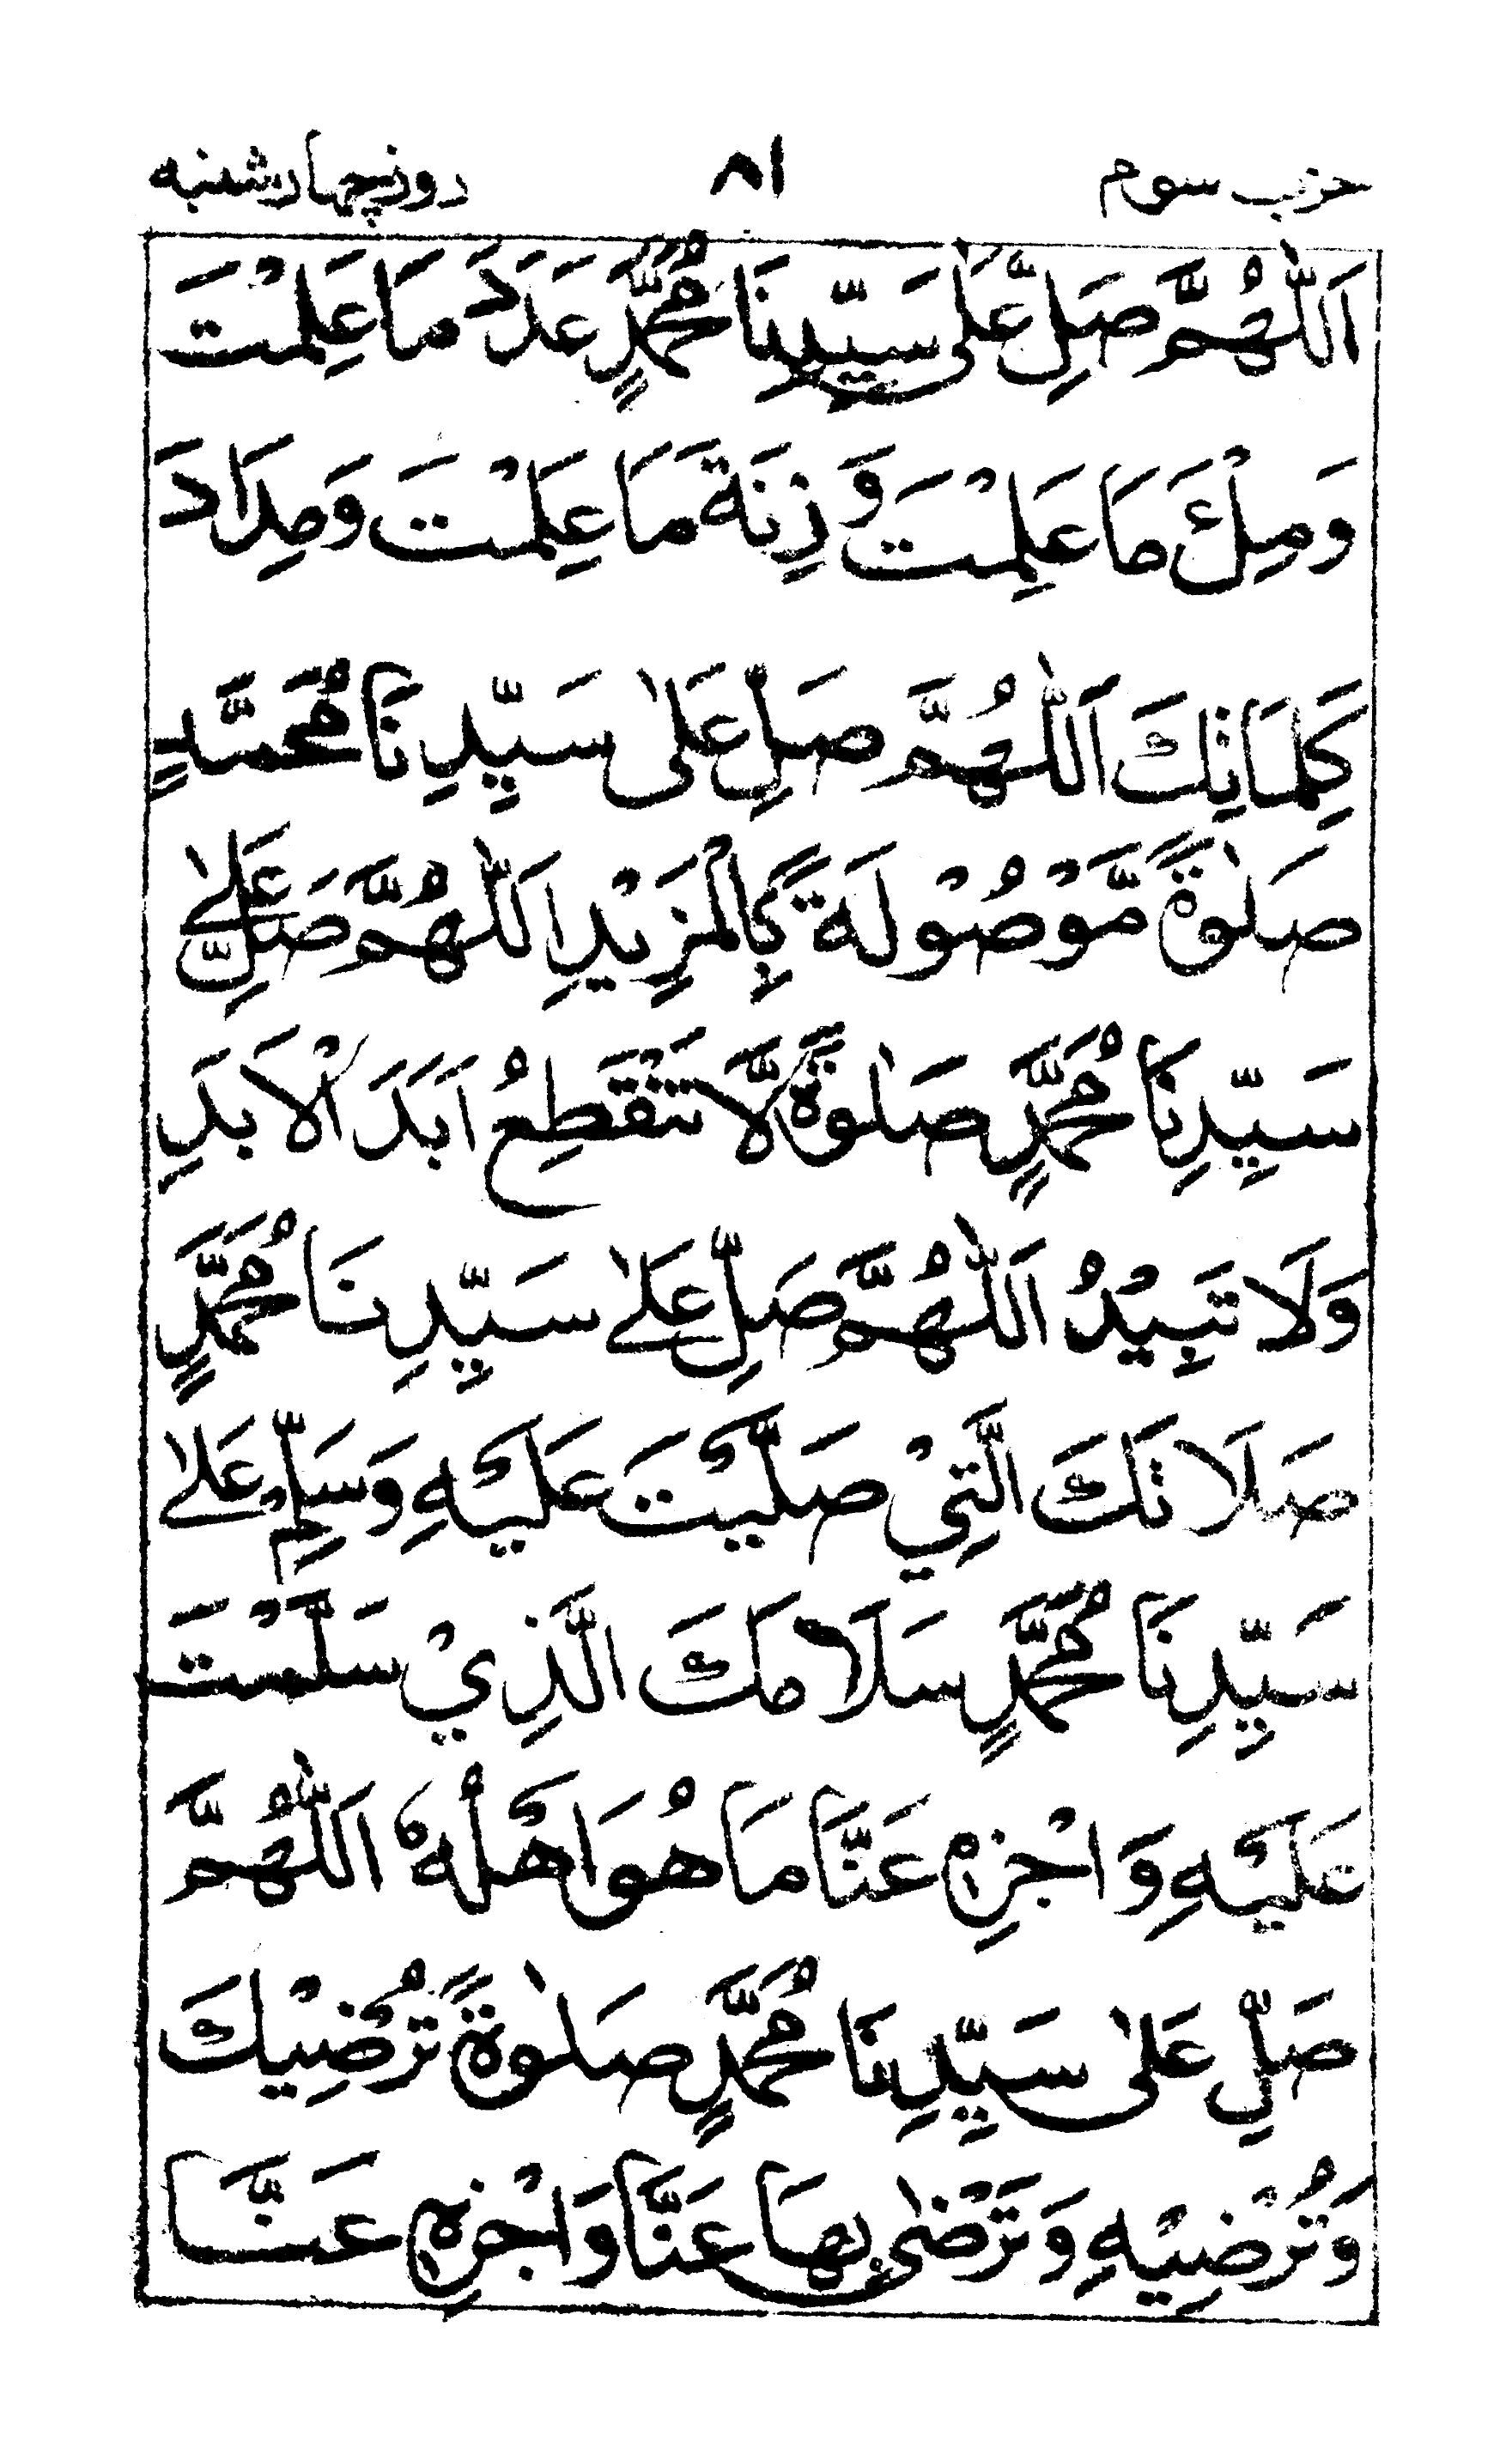 حزب سوم ٨١ روز چهارشنبه
اَللّٰهُمَّ صَلِّ عَلٰى سَيِّدِنَا مُحَمَّدٍ عَدَدَ مَا عَلِمْتَ
وَمِلْئَ مَا عَلِمْتَ وَزِنَةَ مَا عَلِمْتَ وَمِدَادَ
كَلِمَاتِكَ اَللّٰهُمَّ صَلِّ عَلٰى سَيِّدِنَا مُحَمَّدٍ
صَلٰوةً مَّوْصُوْلَةً بِالْمَزِيْدِ اَللّٰهُمَّ صَلِّ عَلٰے
سَيِّدِنَا مُحَمَّدٍ صَلٰوةً لَّا تَنْقَطِعُ اَبَدَ الْاَبَدِ
وَلَا تَبِيْدُ اَللّٰهُمَّ صَلِّ عَلٰے سَيِّدِنَا مُحَمَّدٍ
صَلَاتَكَ الَّتِيْ صَلَّيْتَ عَلَيْهِ وَسَلِّمْ عَلٰے
سَيِّدِنَا مُحَمَّدٍ سَلَامَكَ الَّذِيْ سَلَّمْتَ
عَلَيْهِ وَاجْزِهٖ عَنَّا مَا هُوَ اَهْلُهٗ اَللّٰهُمَّ
صَلِّ عَلٰى سَيِّدِنَا مُحَمَّدٍ صَلٰوةً تُرْضِيْكَ
وَتُرْضِيْهِ وَتَرْضٰى بِهَا عَنَّا وَاجْزِهٖ عَنَّا